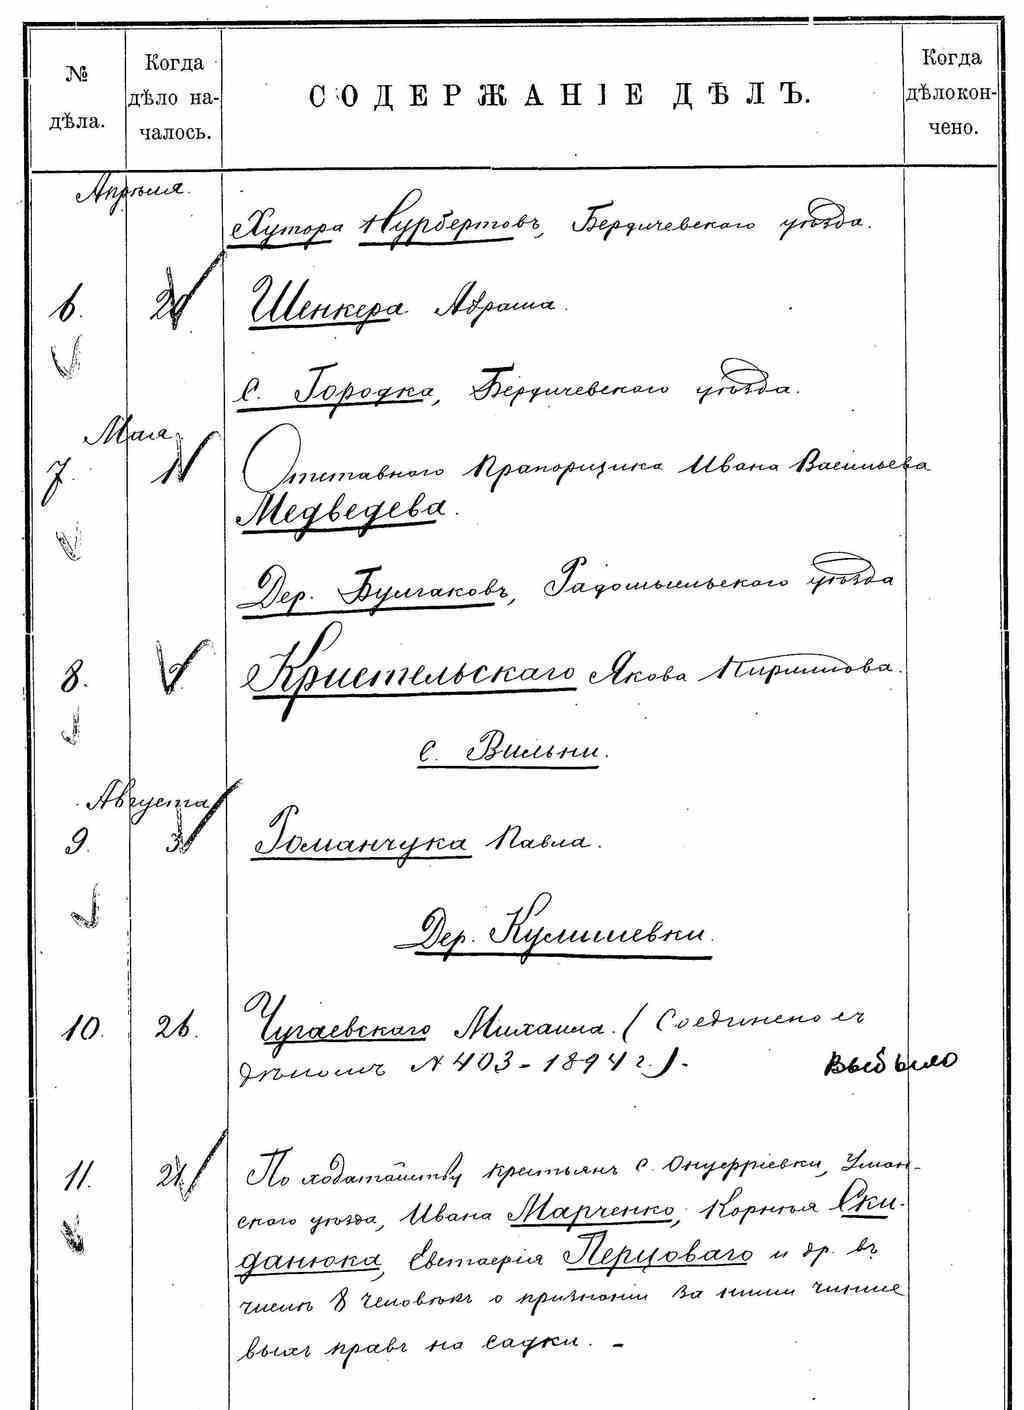 № дѣла.
Когда дѣло на-
чалось.
СОДЕРЖАНІЕ ДѢЛЪ.
Когда дѣло кон-
чено.
Апрѣля.
Хутора Нурбертовъ, Бердичевскаго уѣзда.
6. 20 Шенкера Абрама.
С. Городка, Бердичевскаго уѣзда.
Мая
7. 1 Отставного Прапорщика Ивана Васильева
Медведева.
Дер. Булгаковъ, Радомысльскаго уѣзда
8. 9. Кристельскаго Якова
С. Вильни.
Августа
9. 3 Романчука Павла.
Дер. Кулишевки.
10. 26. Чугаевскаго Михаила. (Соединено съ
дѣломъ № 403 - 1894 г.). Выбыло
11. 21. По ходатайству крестьянъ с. Онуфріевки, Уман-
скаго уѣзда, Ивана Марченко, Корнѣя Ски-
данюка, Евстафія Перцоваго и др. въ
числѣ 8 человѣкъ о признаніи за ними чинше
выхъ правъ на садки. -